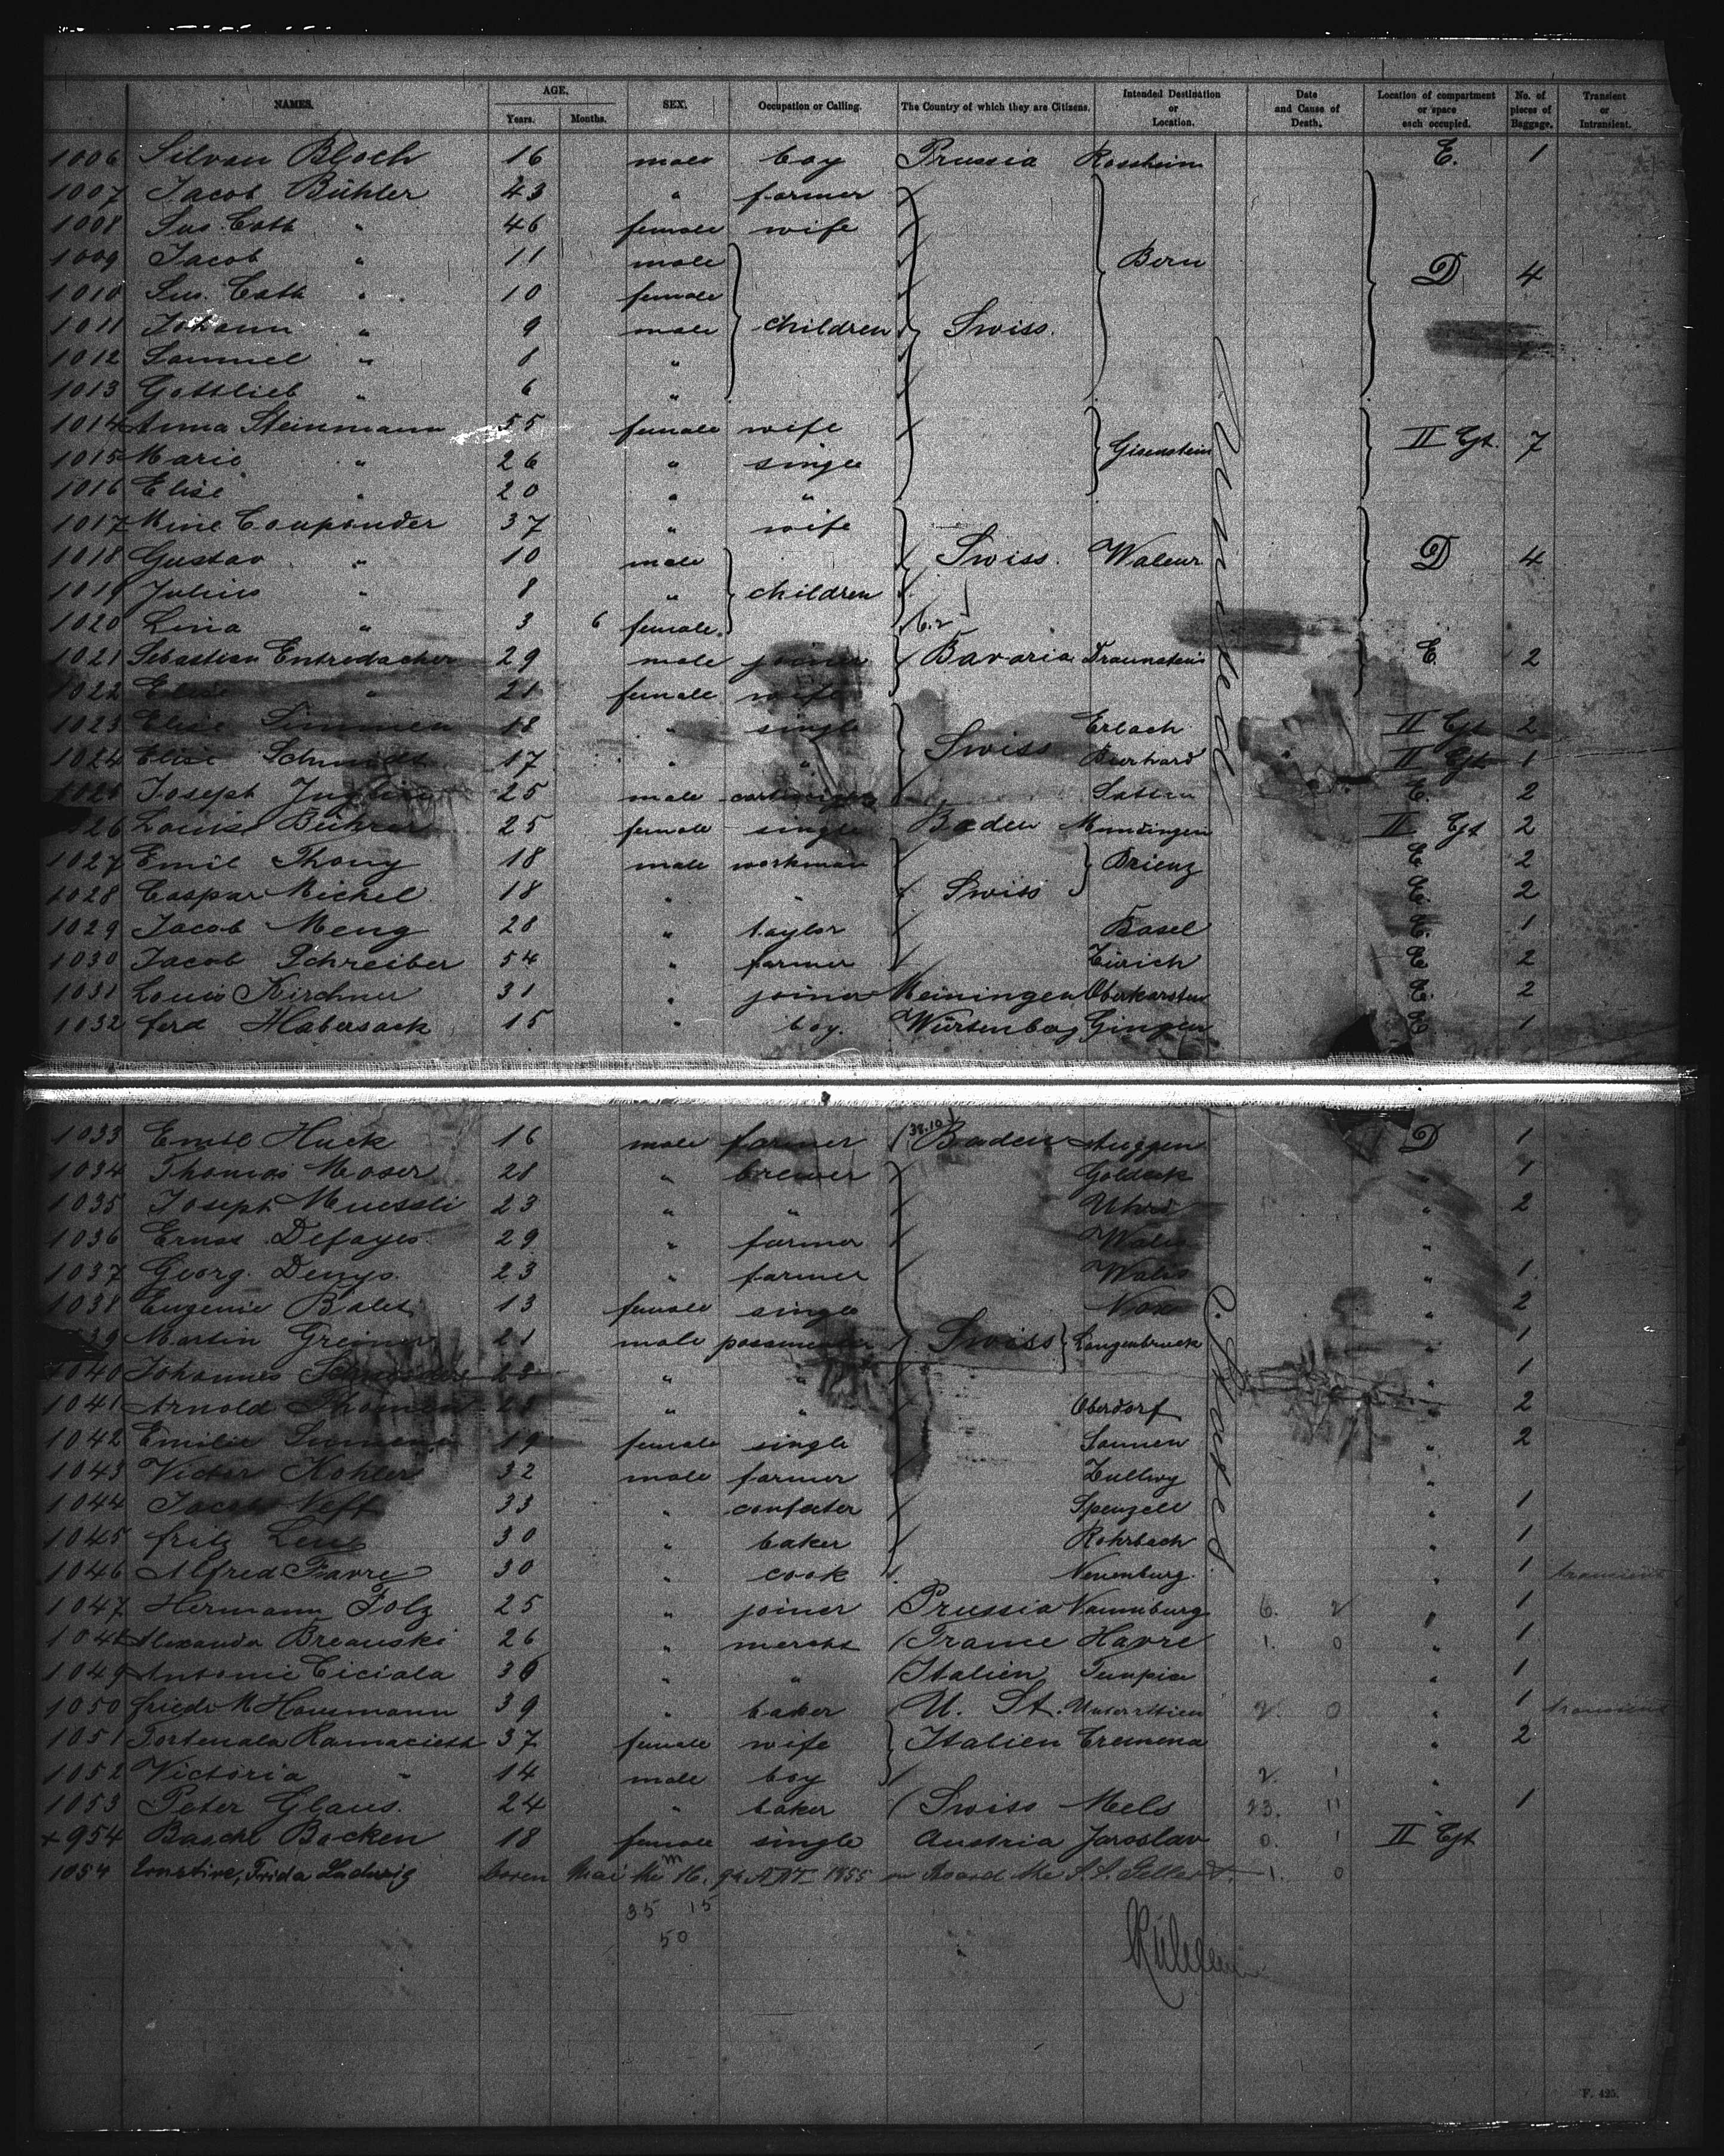 NAMES. AGE. Years. Months. SEX. Occupation or Calling. The Country of which they are Citizens. Intended Destination or Location. Date and Cause of Death. Location of compartment or space each occupied. No. of pieces of Baggage. Transient or Intransient.
1006 Silvan Bloch 16 male boy Prussia Rossheim E. 1
1007 Jacob Bühler 43 " farmer
1008 Sus. Cath " 46 female wife
1009 Jacob " 11 male Bern D 4
1010 Sus. Cath " 10 female
1011 Johann " 9 male children Swiss.
1012 Samuel " 8 "
1013 Gottlieb " 6 "
1014 Anna Steinmann 55 female wife Gisenstein II Cjt. 7
1015 Marie " 26 " single
1016 Elise " 20 " "
1017 Mine Coupender 37 " wife
1018 Gustav " 10 male Swiss. Waleur D 4
1019 Julius " 8 " children
1020 Lina " 3 6 female.
1021 Sebastian Entredacher 29 male joiner Bavaria Traunstein E. 2
1022 Elise " 21 female wife
1023 Elise Simmen 18 " single Erlach II Cjt 2
1024 Elise Schmidt 17 " " Swiss II Cjt 1
Joseph 25 male E. 2
Louise Bührer 25 female single Baden Mundingen II Cjt 2
1027 Emil Thony 18 male workman Brienz E. 2
1028 Caspar Michel 18 " " Swiss E. 2
1029 Jacob Meng 28 " taylor Basel E. 1
1030 Jacob Schreiber 54 " farmer Zürich E. 2
1031 Louis Kirchner 31 " joiner Meiningen E. 2
1032 ferd Habersack 15 " boy. Würtenbag Gingen E 1
1033 Emil Huck 16 male farmer Baden Auggen D 1
1034 Thomas Moser 28 " brewer Goldeck " 1
1035 Joseph Muessli 23 " " " 2
1036 Ernas Defayes 29 " farmer Walis "
1037 Georg. Denys. 23 " farmer Walis " 1.
1038 Eugenie Balet 13 female single Nax " 2
39 Martin Greiner 21 male Swiss Langenbruck " 1
1040 Johannes 28 " " " 1
1041 Arnold Thomen " " Oberdorf " 2
1042 Emilie 19 female single Sannen " 2
1043 Victor Kohler 32 male farmer Zullwy "
1044 Jacob Neff 33 " confecter Spenzell " 1
1045 fritz Leu 30 " baker Rohrbach " 1
1046 Alfred Favre 30 " cook Neuenburg. " 1 transient
1047 Hermann Folz 25 " joiner Prussia Naumburg 6. 2 " 1
1048 Alexander Breauski 26 " mercht France Havre 1. 0 " 1
1049 Antonie Ciciala 36 " " Italien " 1
1050 Friedr M Hausmann 39 " baker U. St. 2. 0 " 1 transient
1051 Tortenala Ramacieth 37 female wife Italien Cremena " 2
1052 Victoria " 14 male boy 2. 1 "
1053 Peter Glaus. 24 " baker Swiss Mels 23. 11 " 1
+ 954 Baschl Backen 18 female single Austria Jaroslav 0. 1 II Cjt
1054 Ernstine, Frida Ludwig boren Mai the 16. on Board the S. S. Gellert. 1. 0
35 15
50
F. 425.